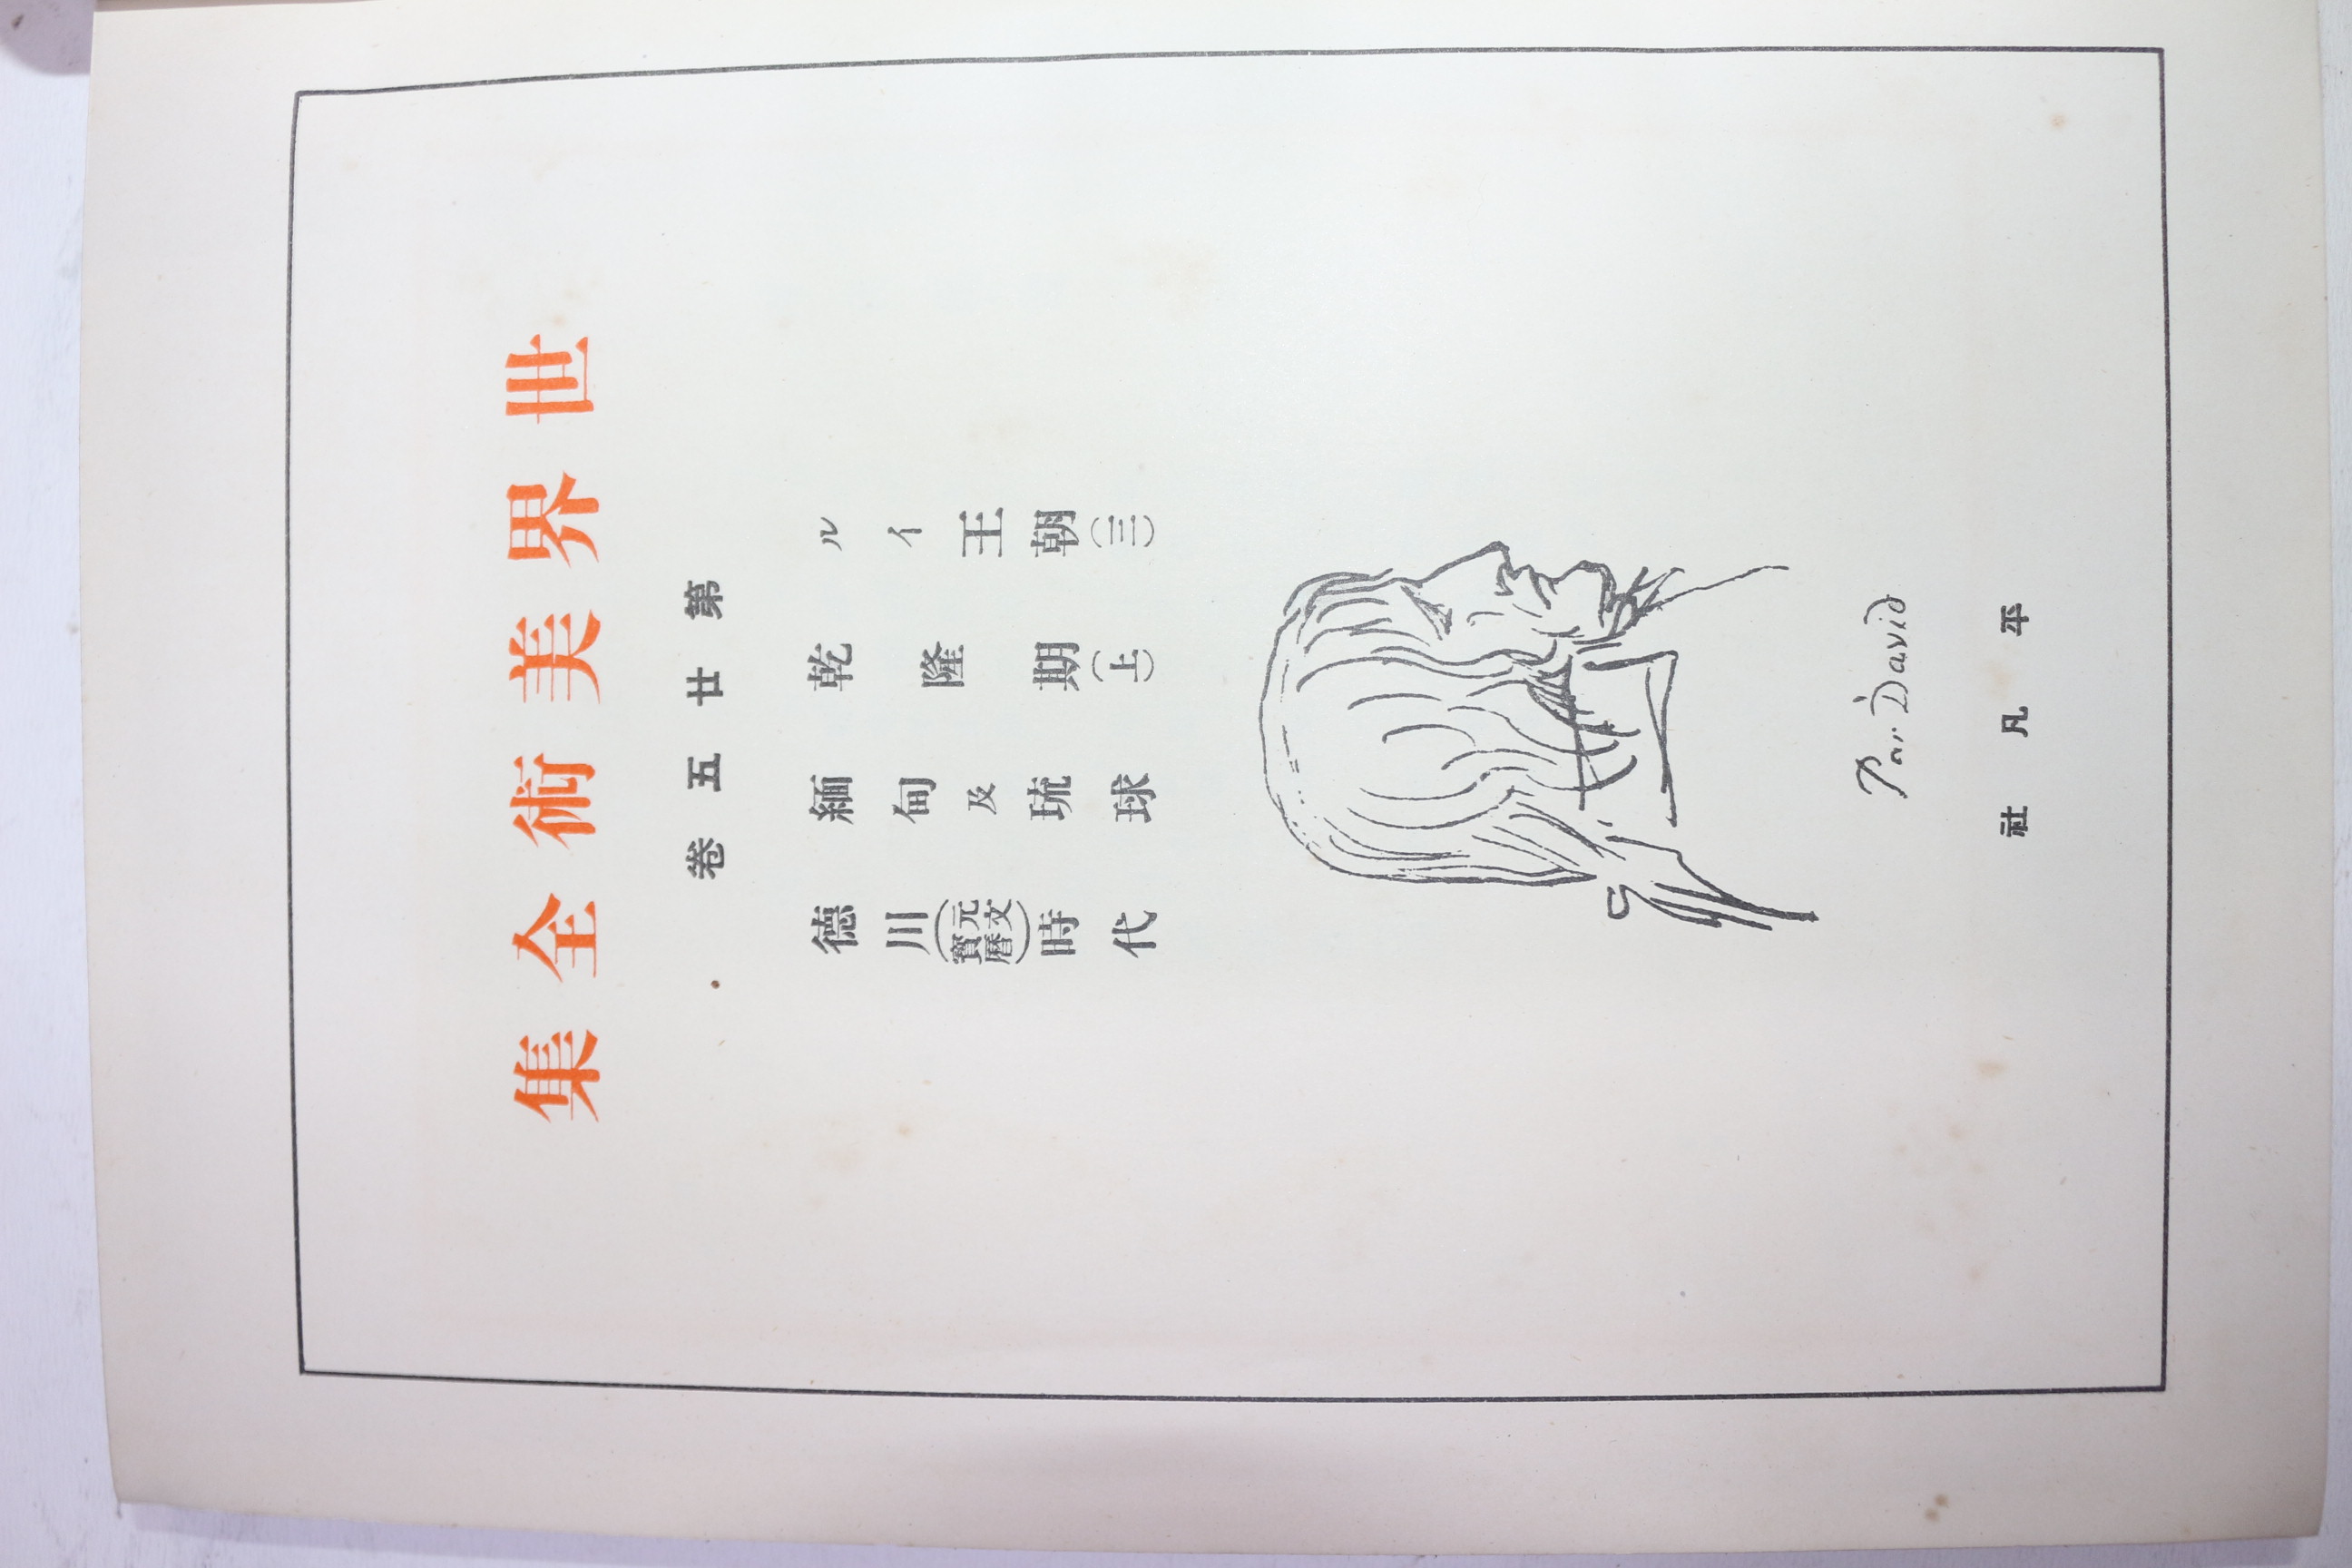 世界美術全集
第廿五卷
ルイ王朝(三)
乾隆期(上)
緬甸及琉球
德川(元文寶曆)時代
Par David
平凡社